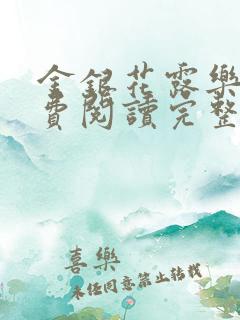 金銀花露樂
費閱讀完整
喜樂
未經同意禁止轉載